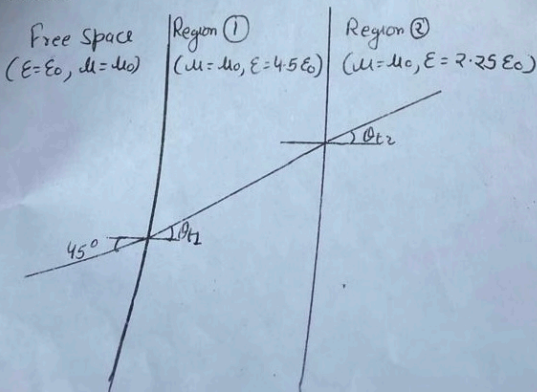 Free Space
(ε=ε0, μ=μ0)
Region ①
(μ=μ0, ε=4.5ε0)
Region ②
(μ=μ0, ε=2.25ε0)
θt2
45°
θt1